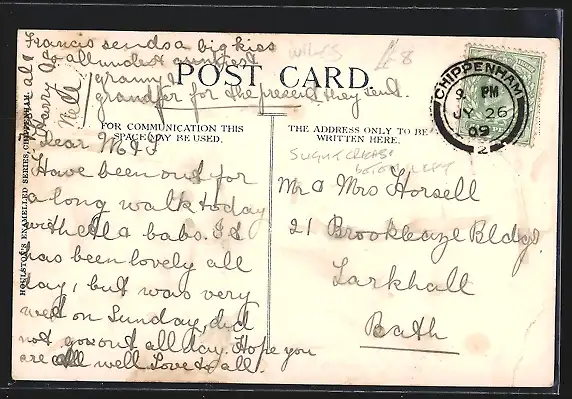 Francis sends a big kiss
to all indest auntiest
granny &
grandfer for the present they send.
WILTS
£8
POST CARD.
CHIPPENHAM
9 PM
JY 26
09
2
FOR COMMUNICATION THIS
SPACE MAY BE USED.
THE ADDRESS ONLY TO BE
WRITTEN HERE.
SLIGHT CREASE
BOTTOM LEFT
HOULSTON'S ENAMELLED SERIES, CHIPPENHAM
Harry &
Nell
Dear M & F
Have been out for
a long walk today
with Ella babs. It
has been lovely all
day, but was very
wet on Sunday, did
not go out all day. Hope you
are all well Love to all.
Mr & Mrs Horsell
21 Brookleaze Bldgs
Larkhall
Bath